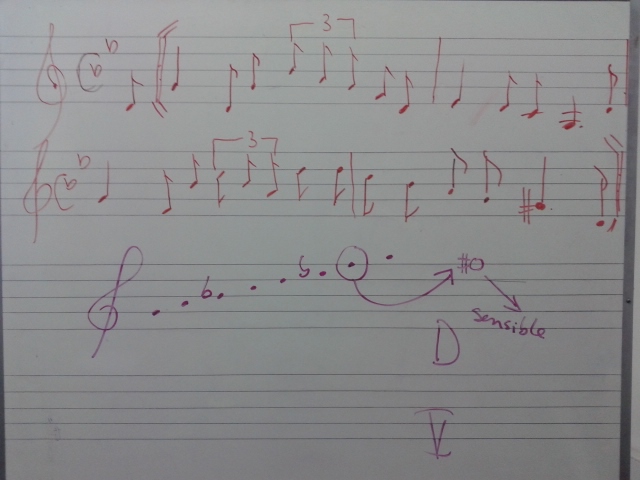 3
3
sensible
D
V